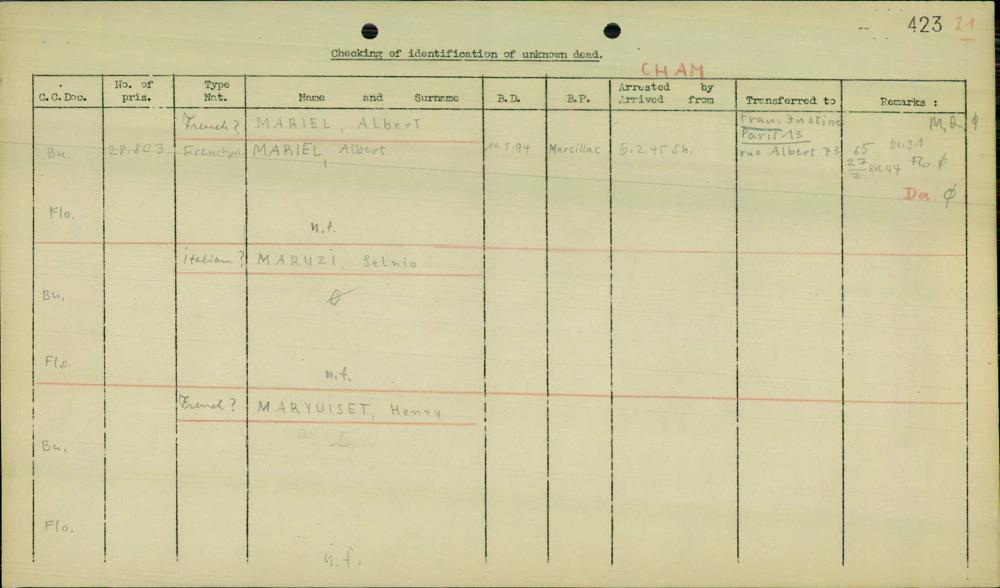 423 21
Checking of identification of unknown dead.
CHAM
C.C.Doc. No. of pris. Type Nat. Name and Surname B.D. B.P. Arrested by Arrived from Transferred to Remarks :
French? MARIEL, Albert
M.Q. ϕ
Paris 13
Bu. 28.803 MARIEL, Albert 10.5.94 Marcillac 6.2.45 Sh. rue Albert 73 65
27/2 Flo. ϕ
Da ϕ
Flo. n.f.
italian? MARUZI, Selnio
Bu. ϕ
Flo. n.f.
French? MARYUISET, Henry
Bu.
Flo. n.f.